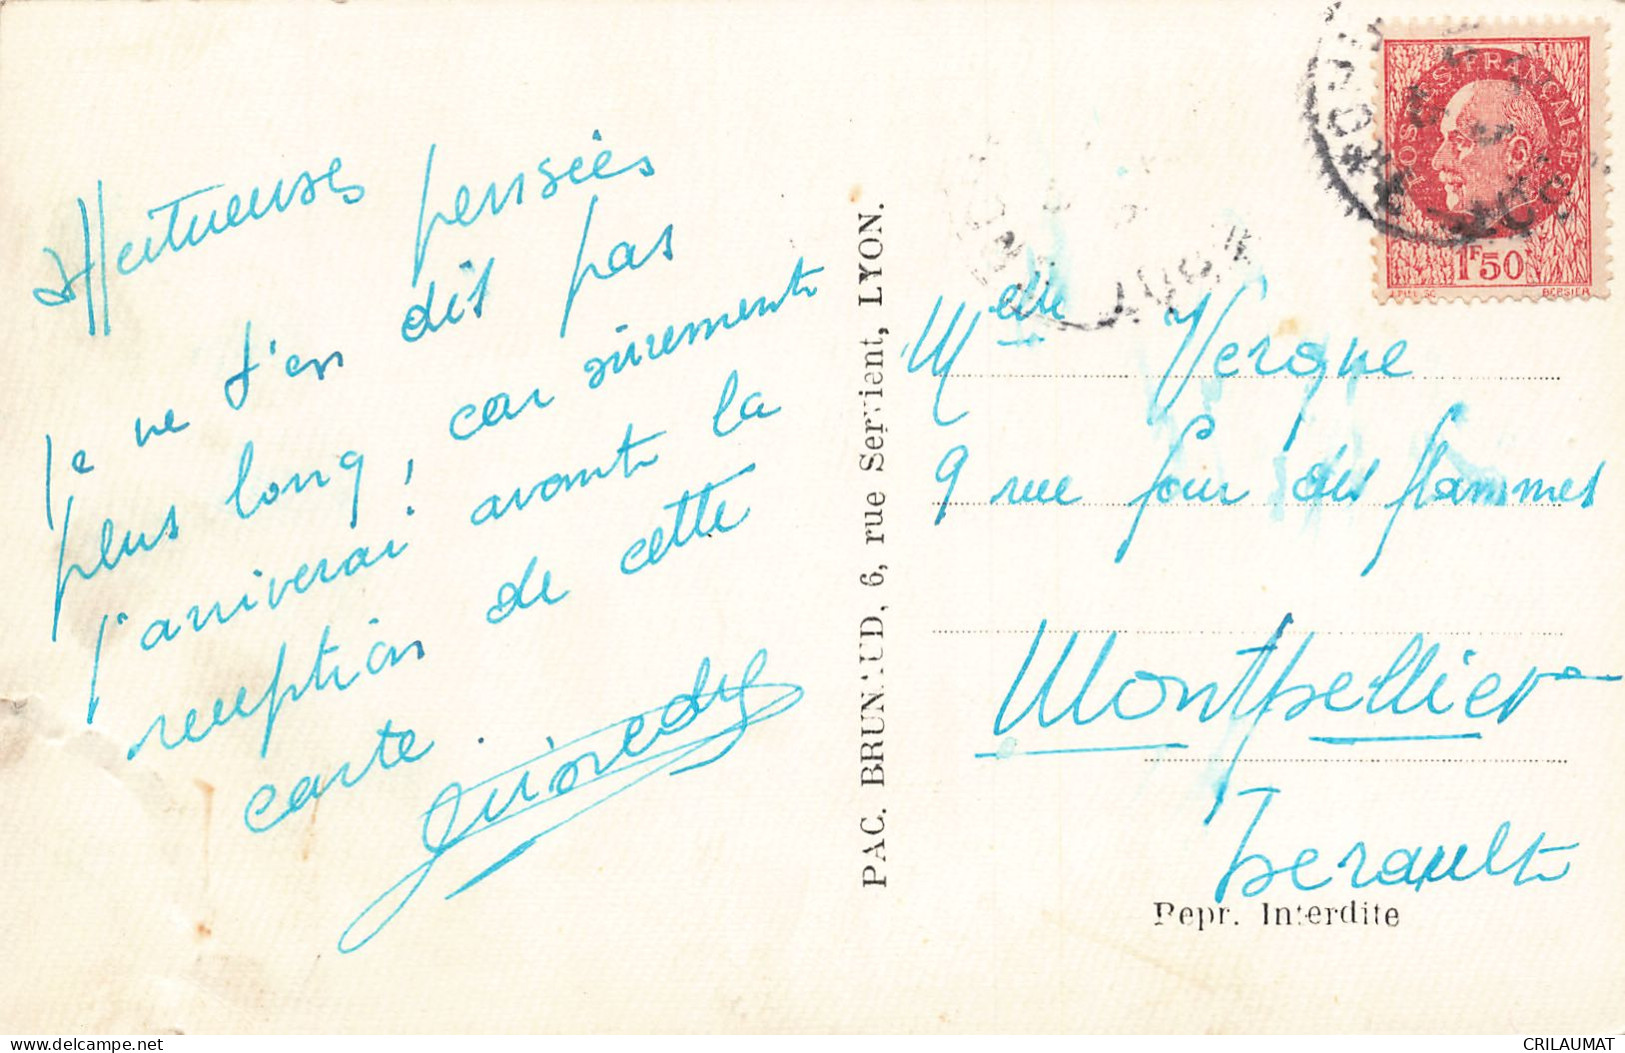 Affectueuses pensées
Je ne t'en dis pas
plus long, car sûrement
j'arriverai avant la
reception de cette
carte.
PAC. BRUNAUD, 6, rue Servient, LYON.
POSTES FRANÇAISES
1F50
BERSIER
Melle Vergne
9 rue four des flammes
Montpellier
Herault
Repr. Interdite
CRILAUMAT